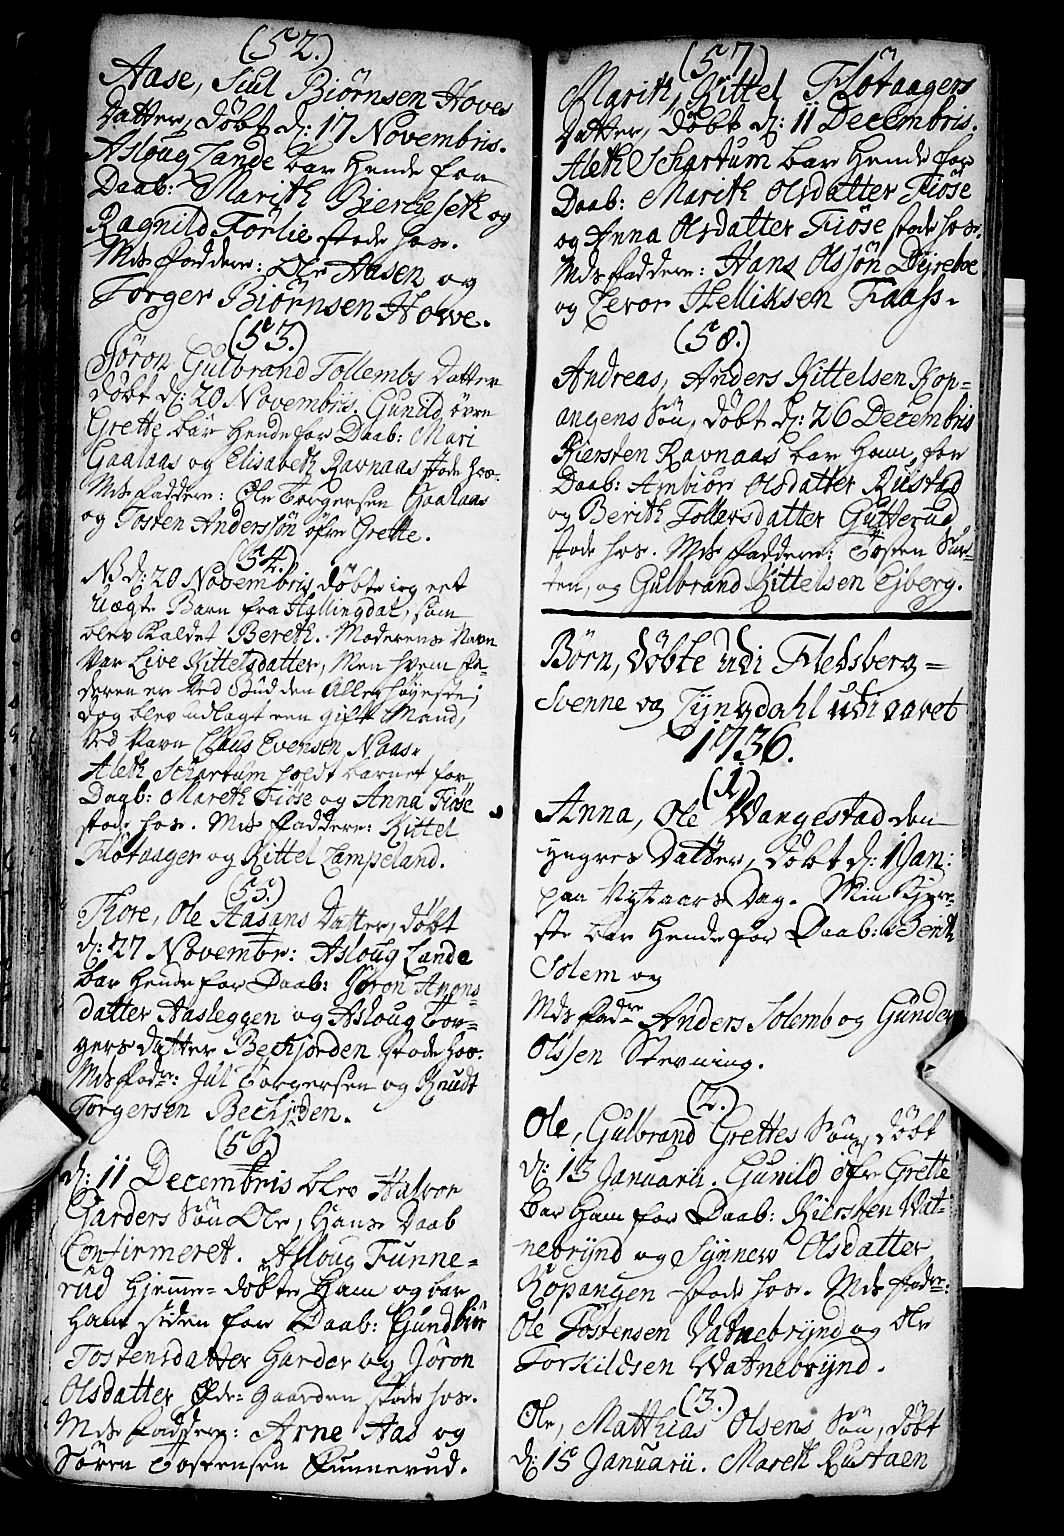 (52.)
Aase, Siul Biörnsen Hoves
Datter, döbt d: 17 Novembris.
Asloug Lande bar Hende for
Daab: Marith Bierckeseth og
Ragnild Förlie stode hos.
Mds faddere: Ole Aasen og
Torger Biörnsen Howe.
(53.)
Jöron Gulbrand Tollembs Datter
döbt d: 20 Novembris. Gunild övre
Grette bar Hende for Daab: Mari
Gaalaas og Elisabeth Ravnaas stode hos.
Mds faddere: Ole Torgersen Gaalaas
og Tosten Anderssön öfre Grette.
(54.)
NB d: 20 Novembris döbte ieg eet
Uægte Barn fra Hallingdal, som
blev kaldet Bereth. Moderens Navn
var Live Kittelsdatter, Men hvem fa-
deren er ved Gud den Allerhöyeste;
dog blev udlagt een gift Mand,
ved Navn Claus Evensen Naas.
Aleth Schartum holdt barnet for
Daab: Mareth Fiöse og Anna Fiöse
stode hos. Mds Faddere: Kittel
Flötaager og Kittel Lampeland.
(55.)
Thore, Ole Aasans Datter, döbt
d: 27 Novembr: Asloug Lande
bar Hende for Daab: Jöron Amons-
datter Aasleggen og Asloug Tor-
gers datter Beckjorden stode hos.
Mds fadr: Jul Torgersen og Knudt
Torgersen Beckjorden.
(56.)
d: 11 Decembris blev Halvor
Garders Sön Ole, Hans Daab
Confirmeret. Asloug Funne-
rud hjemme-döbte Ham og bar
Ham siden for Daab: Gundbiör
Tostensdatter Garder og Jöron
Olsdatter Öde-gaarden stode hos.
Mds Faddere: Arne Aas og
Sören Tostensen Funnerud.
(57.)
Marith, Kittel Flötaagers
Datter, döbt d: 11 Decembris.
Aleth Schartum bar Hende for
Daab: Marith Olsdatter Fiöse
og Anna Olsdatter Fiöse stode hos.
Mds faddere: Hans Olssön Dyreboe
og Tevor Hellîksen Faass.
(58.)
Andreas, Anders Kittelsen Kop-
angens Sön, döbt d: 26 Decembris
Kiersten Ravnaas bar Ham for
Daab: Ambiör Olsdatter Rustad
og Berith Tollefsdatter Gutterud
stode hos. Mds Faddere: Tosten
ten, og Gulbrand Kittelsen Ejberg.
Börn, döbte udi Fledsberg-
Svenne og Lÿngdahl udi aaret
1736.
(1.)
Anna, Ole Wangestad den
yngres Datter, döbt d: 1 Jan:
paa Nytaars Dag. Min Kjere-
ste bar Hende for Daab: Bendt
Solem og
Mds fadre Anders Solemb og Gunder
Olssen Stevning.
(2.)
Ole, Gulbrand Grettes Sön, döbt
d: 15 Januarii. Gunild öfre Grette
bar Ham for Daab: Kiersten Wat-
nebrÿnd og Synnew Olsdatter
Kopangen stode hos. Mds fadre:
Ole Tostensen Vatnebrÿnd og Ole
Torkildsen Watnebrÿnd.
(3.)
Ole, Matthias Olsens Sön, döbt
d: 15 Januarii. Mareth Rustaen